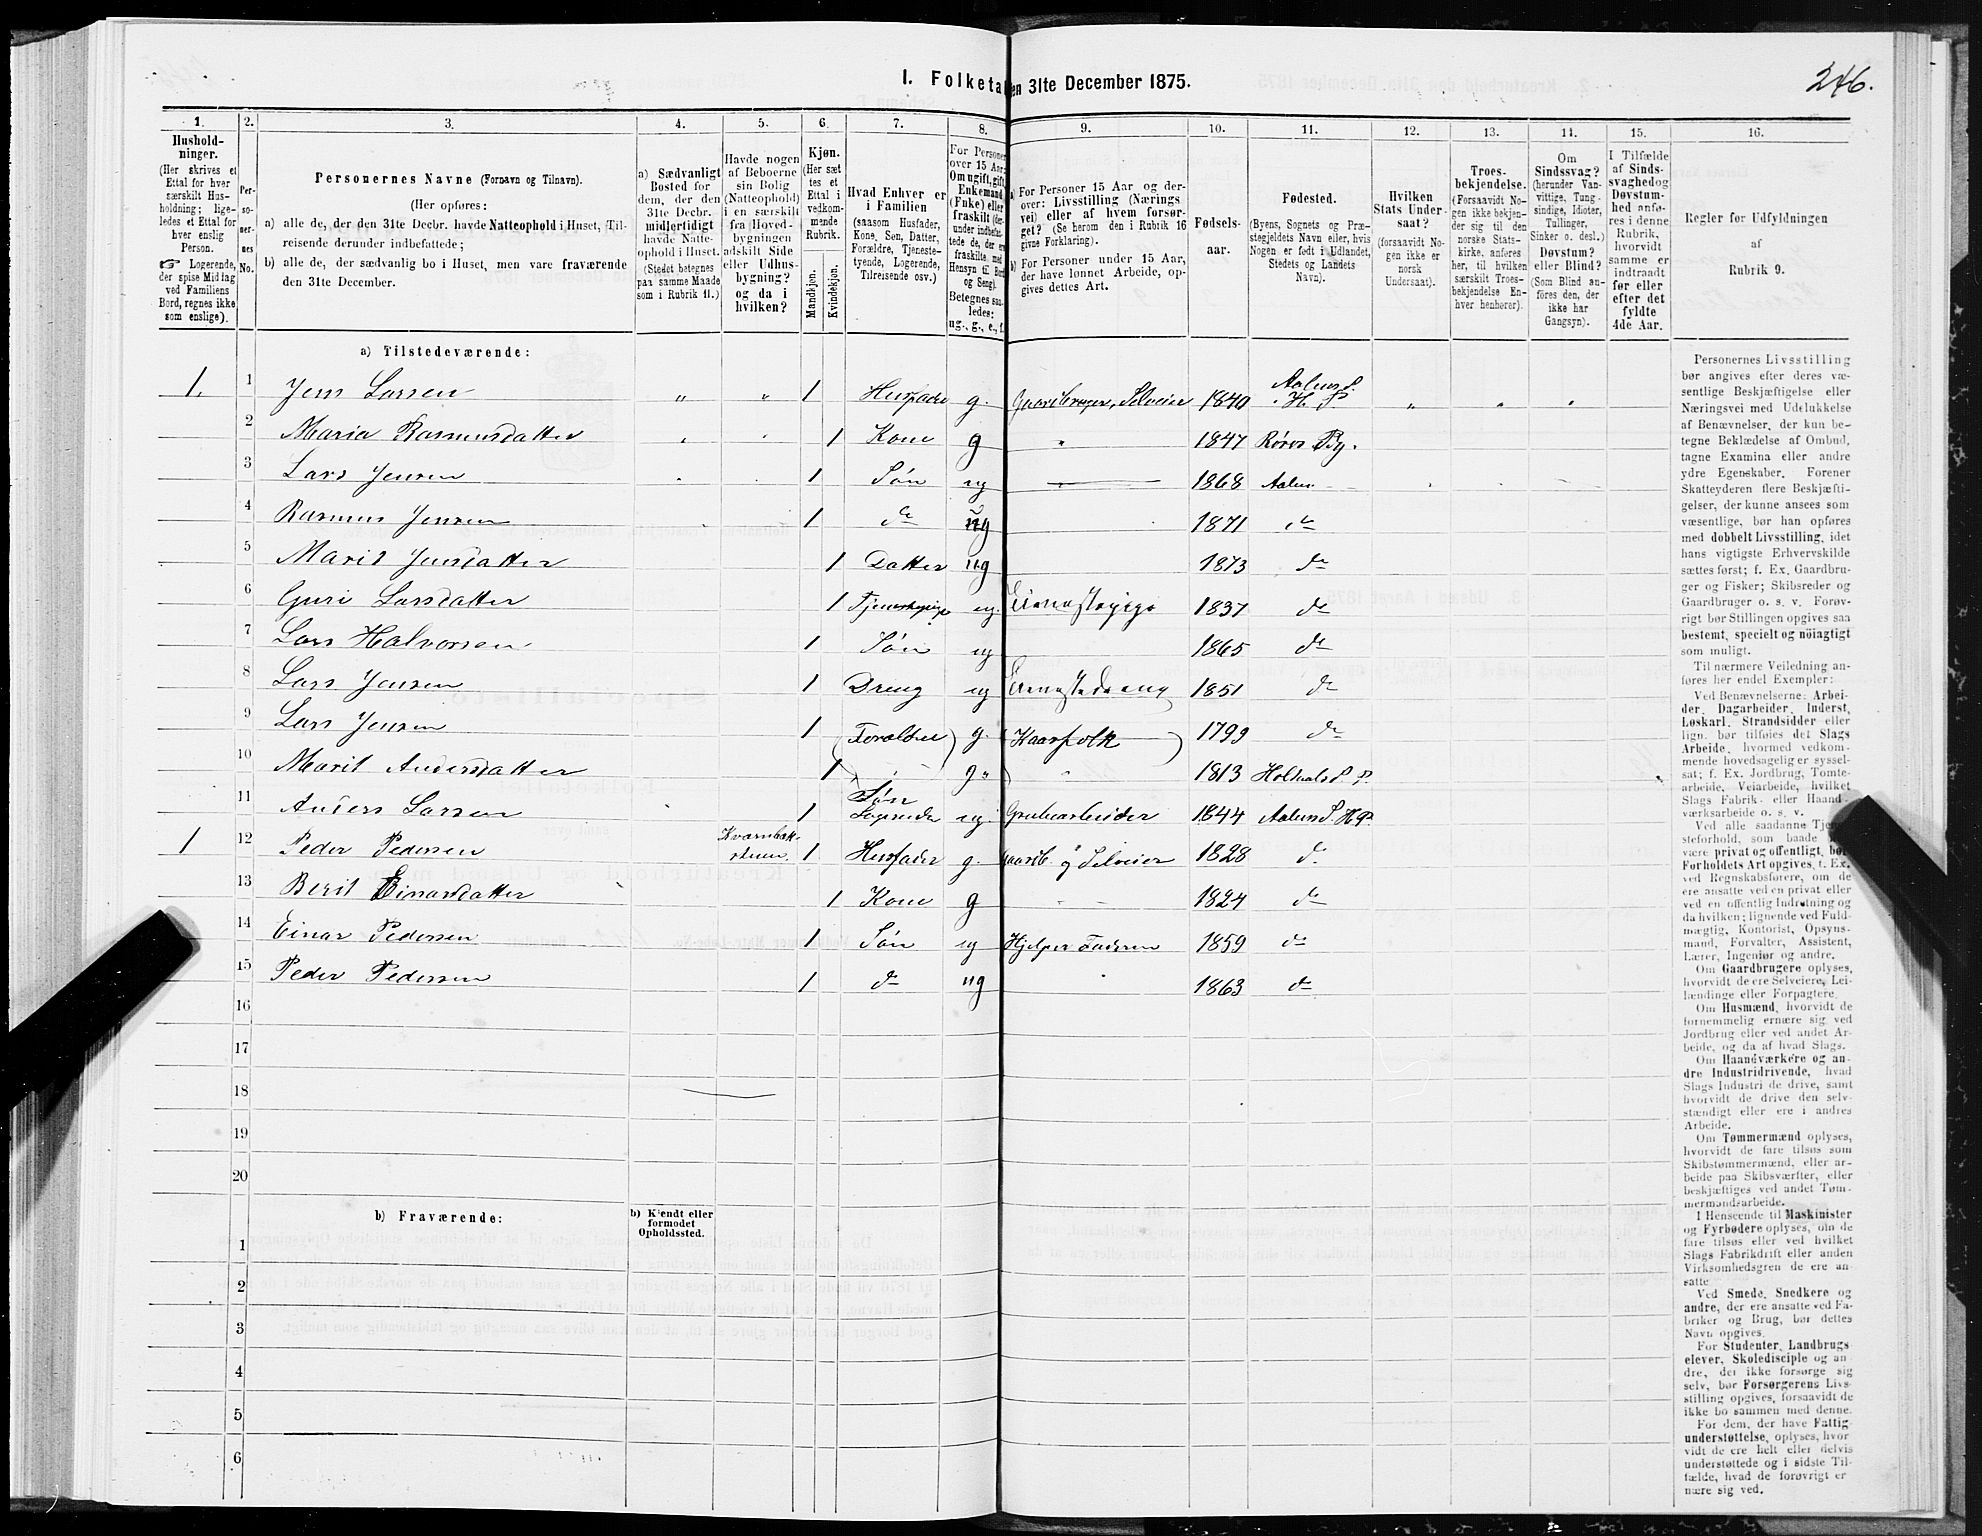 246.
I. Folketal den 31te December 1875.
1. 2. 3. 4. 5. 6. 7. 8. 9. 10. 11. 12. 13. 14. 15. 16.
Hushold-
ninger.
(Her skrives et
Ettal for hver
særskilt Hus-
holdning; lige-
ledes et Ettal for
hver enslig
Person.
☞ Logerende,
der spise Middag
ved Familiens
Bord, regnes ikke
som enslige).
Per-
so-
ner-
nes
No.
Personernes Navne (Fornavn og Tilnavn).
(Her opføres:
a) alle de, der den 31te Decbr. havde Natteophold i Huset, Til-
reisende derunder indbefattede;
b) alle de, der sædvanlig bo i Huset, men vare fraværende
den 31te December.
a) Sædvanligt
Bosted for
dem, der den
31te Decbr.
midlertidigt
havde Natte-
ophold i Huset.
(Stedet betegnes
paa samme Maade
som i Rubrik 11.)
Havde nogen
af Beboerne
sin Bolig
(Natteophold)
i en særskilt
fra Hoved-
bygningen
adskilt Side
eller Udhus-
bygning?
og da i
hvilken?
Kjøn.
(Her sæt
tes et
Ettal i
vedkom-
mende
Rubrik.
Mandkjøn.
Kvindekjøn.
Hvad Enhver er
i Familien
(saasom Husfader,
Kone, Søn, Datter,
Forældre, Tjeneste-
tyende, Logerende,
Tilreisende osv.)
For Personer
over 15 Aar:
Om ugift, gift,
Enkemand
(Enke) eller
fraskilt (der-
under indbefat-
tede de, der ere
fraskilte med
Hensyn til Bord
og Seng).
Betegnes saa-
ledes:
ug., g., e., f.
a) For Personer 15 Aar og der-
over: Livsstilling (Nærings
vei) eller af hvem forsør-
get? (Se herom den i Rubrik 16
givne Forklaring).
b) For Personer under 15 Aar,
der have lønnet Arbeide, op-
gives dettes Art.
Fødsels-
aar.
Fødested.
(Byens, Sognets og Præ-
stegjeldets Navn eller, hvis
Nogen er født i Udlandet,
Stedets og Landets
Navn).
Hvilken
Stats Under-
saat?
(forsaavidt No-
gen ikke er
norsk
Undersaat).
Troes-
bekjendelse.
(Forsaavidt No-
gen ikke bekjen-
der sig til den
norske Stats-
kirke, anføres
her, til hvilken
særskilt Troes-
bekjendelse En-
hver henhører).
Om
Sindssvag?
(herunder Van-
vittige, Tung-
sindige, Idioter,
Tullinger,
Sinker o. desl.)
Døvstum?
eller Blind?
(Som Blind an-
føres den, der
ikke har
Gangsyn).
I Tilfælde
af Sinds-
svaghed og
Døvstum-
hed anfø-
res i denne
Rubrik,
hvorvidt
samme er
indtraadt
før eller
efter det
fyldte
4de Aar.
Regler for Udfyldningen
af
Rubrik 9.
a) Tilstedeværende:
1. 1 Jens Larsen " " 1 Husfader g. Gaardbruger, Selveier 1840 Aalens S. H. P. " " "
2 Maria Rasmusdatter 1 Kone g " 1847 Røros By.
3 Lars Jensen 1 Søn ug " 1868 Aalen
4 Rasmus Jensen 1 do ug 1871 do
5 Marit Jensdatter 1 Datter ug 1873 do
6 Guri Larsdatter 1 Tjenestepige ug. Tjenestepige 1837 do
7 Lars Halvorsen 1 Søn ug 1865 do
8 Lars Jensen 1 Dreng ug Tjenestedreng 1851 do
9 Lars Jensen 1 (Forældre) g. (Kaarfolk) 1799 do
10 Marit Andersdatter 1 " g. " 1813 Holtaals S P.
11 Anders Larsen 1 Søn Logerende ug. Grubearbeider 1844 Aalens S. H P.
1 12 Peder Pedersen 1 Husfader g. Gaardb. og Selveier 1828 do
13 Berit Einarsdatter 1 Kone g 1824 do
14 Einar Pedersen 1 Søn ug Hjelper Faderen 1859 do
15 Peder Pedersen 1 do ug 1863 do
16
17
18
19
20
b) Fraværende:
b) Kjendt eller
formodet
Opholdssted.
1
2
3
4
5
6
Personernes Livsstilling
bør angives efter deres væ-
sentlige Beskjæftigelse eller
Næringsvei med Udelukkelse
af Benævnelser, der kun be-
tegne Beklædelse af Ombud,
tagne Examina eller andre
ydre Egenskaber. Forener
Skatteyderen flere Beskjæfti-
gelser, der kunne ansees som
væsentlige, bør han opføres
med dobbelt Livsstilling, idet
hans vigtigste Erhvervskilde
sættes først; f. Ex. Gaardbru-
ger og Fisker; Skibsreder og
Gaardbruger o. s. v. Forøv-
rigt bør Stillingen opgives saa
bestemt, specielt og nöiagtigt
som muligt.
Til nærmere Veiledning an-
føres her endel Exempler:
Ved Benævnelserne: Arbei-
der, Dagarbeider, Inderst,
Løskarl, Strandsidder eller
lign. bør tilføies det Slags
Arbeide, hvormed vedkom-
mende hovedsagelig er syssel-
sat; f. Ex. Jordbrug, Tomte-
arbeide, Veiarbeide, hvilket
Slags Fabrik- eller Haand-
værksarbeide o. s. v.
Ved alle saadanne Tjene-
steforhold, som baade kan
være privat og offentligt, bør
Forholdets Art opgives, t. Ex.
ved Regnskabsførere, om de
ere ansatte ved en privat eller
ved en offentlig Indretning og
da hvilken; lignende ved Fuld-
mægtig, Kontorist, Opsyns-
mand, Forvalter, Assistent,
Lærer, Ingeniør og andre.
Om Gaardbrugere oplyses,
hvorvidt de ere Selveiere, Lei-
lændinge eller Forpagtere.
Om Husmænd, hvorvidt de
fornemmelig ernære sig ved
Jordbrug eller ved andet Ar-
beide, og da af hvad Slags.
Om Haandværkere og an-
dre Industridrivende, hvad
Slags Industri de drive, samt
hvorvidt de drive den selv-
stændigt eller ere i andres
Arbeide.
Om Tømmermænd oplyses,
hvorvidt de fare tilsøs som
Skibstømmermænd, eller ar-
beide paa Skibsværfter, eller
beskjæftiges ved andet Tøm-
mermandsarbeide.
I Henseende til Maskinister
og Fyrbødere oplyses, om de
fare tilsøs eller ved hvilket
Slags Fabrikdrift eller anden
Virksomhedsgren de ere an-
satte
Ved Smede, Snedkere og
andre, der ere ansatte ved Fa-
briker og Brug, bør dettes
Navn opgives.
For Studenter, Landbrugs
elever, Skoledisciple og an-
dre, der ikke forsørge sig
selv, bør Forsørgerens Livs-
stilling opgives, forsaavidt de
ikke bo sammen med denne.
For dem, der have Fattig-
understøttelse, oplyses, hvor
vidt de ere helt eller delvis
understøttede og i sidste Til-
fælde, hvad de forøvrigt er
nære sig ved.